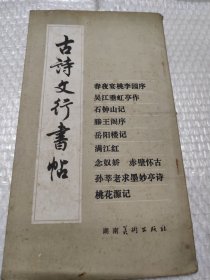 古詩文行書帖
春夜宴桃李园序
吴江垂虹亭作
石钟山记
滕王阁序
岳阳楼记
满江红
念奴娇　赤壁怀古
孙莘老求墨妙亭诗
桃花源记
湖南美術出版社